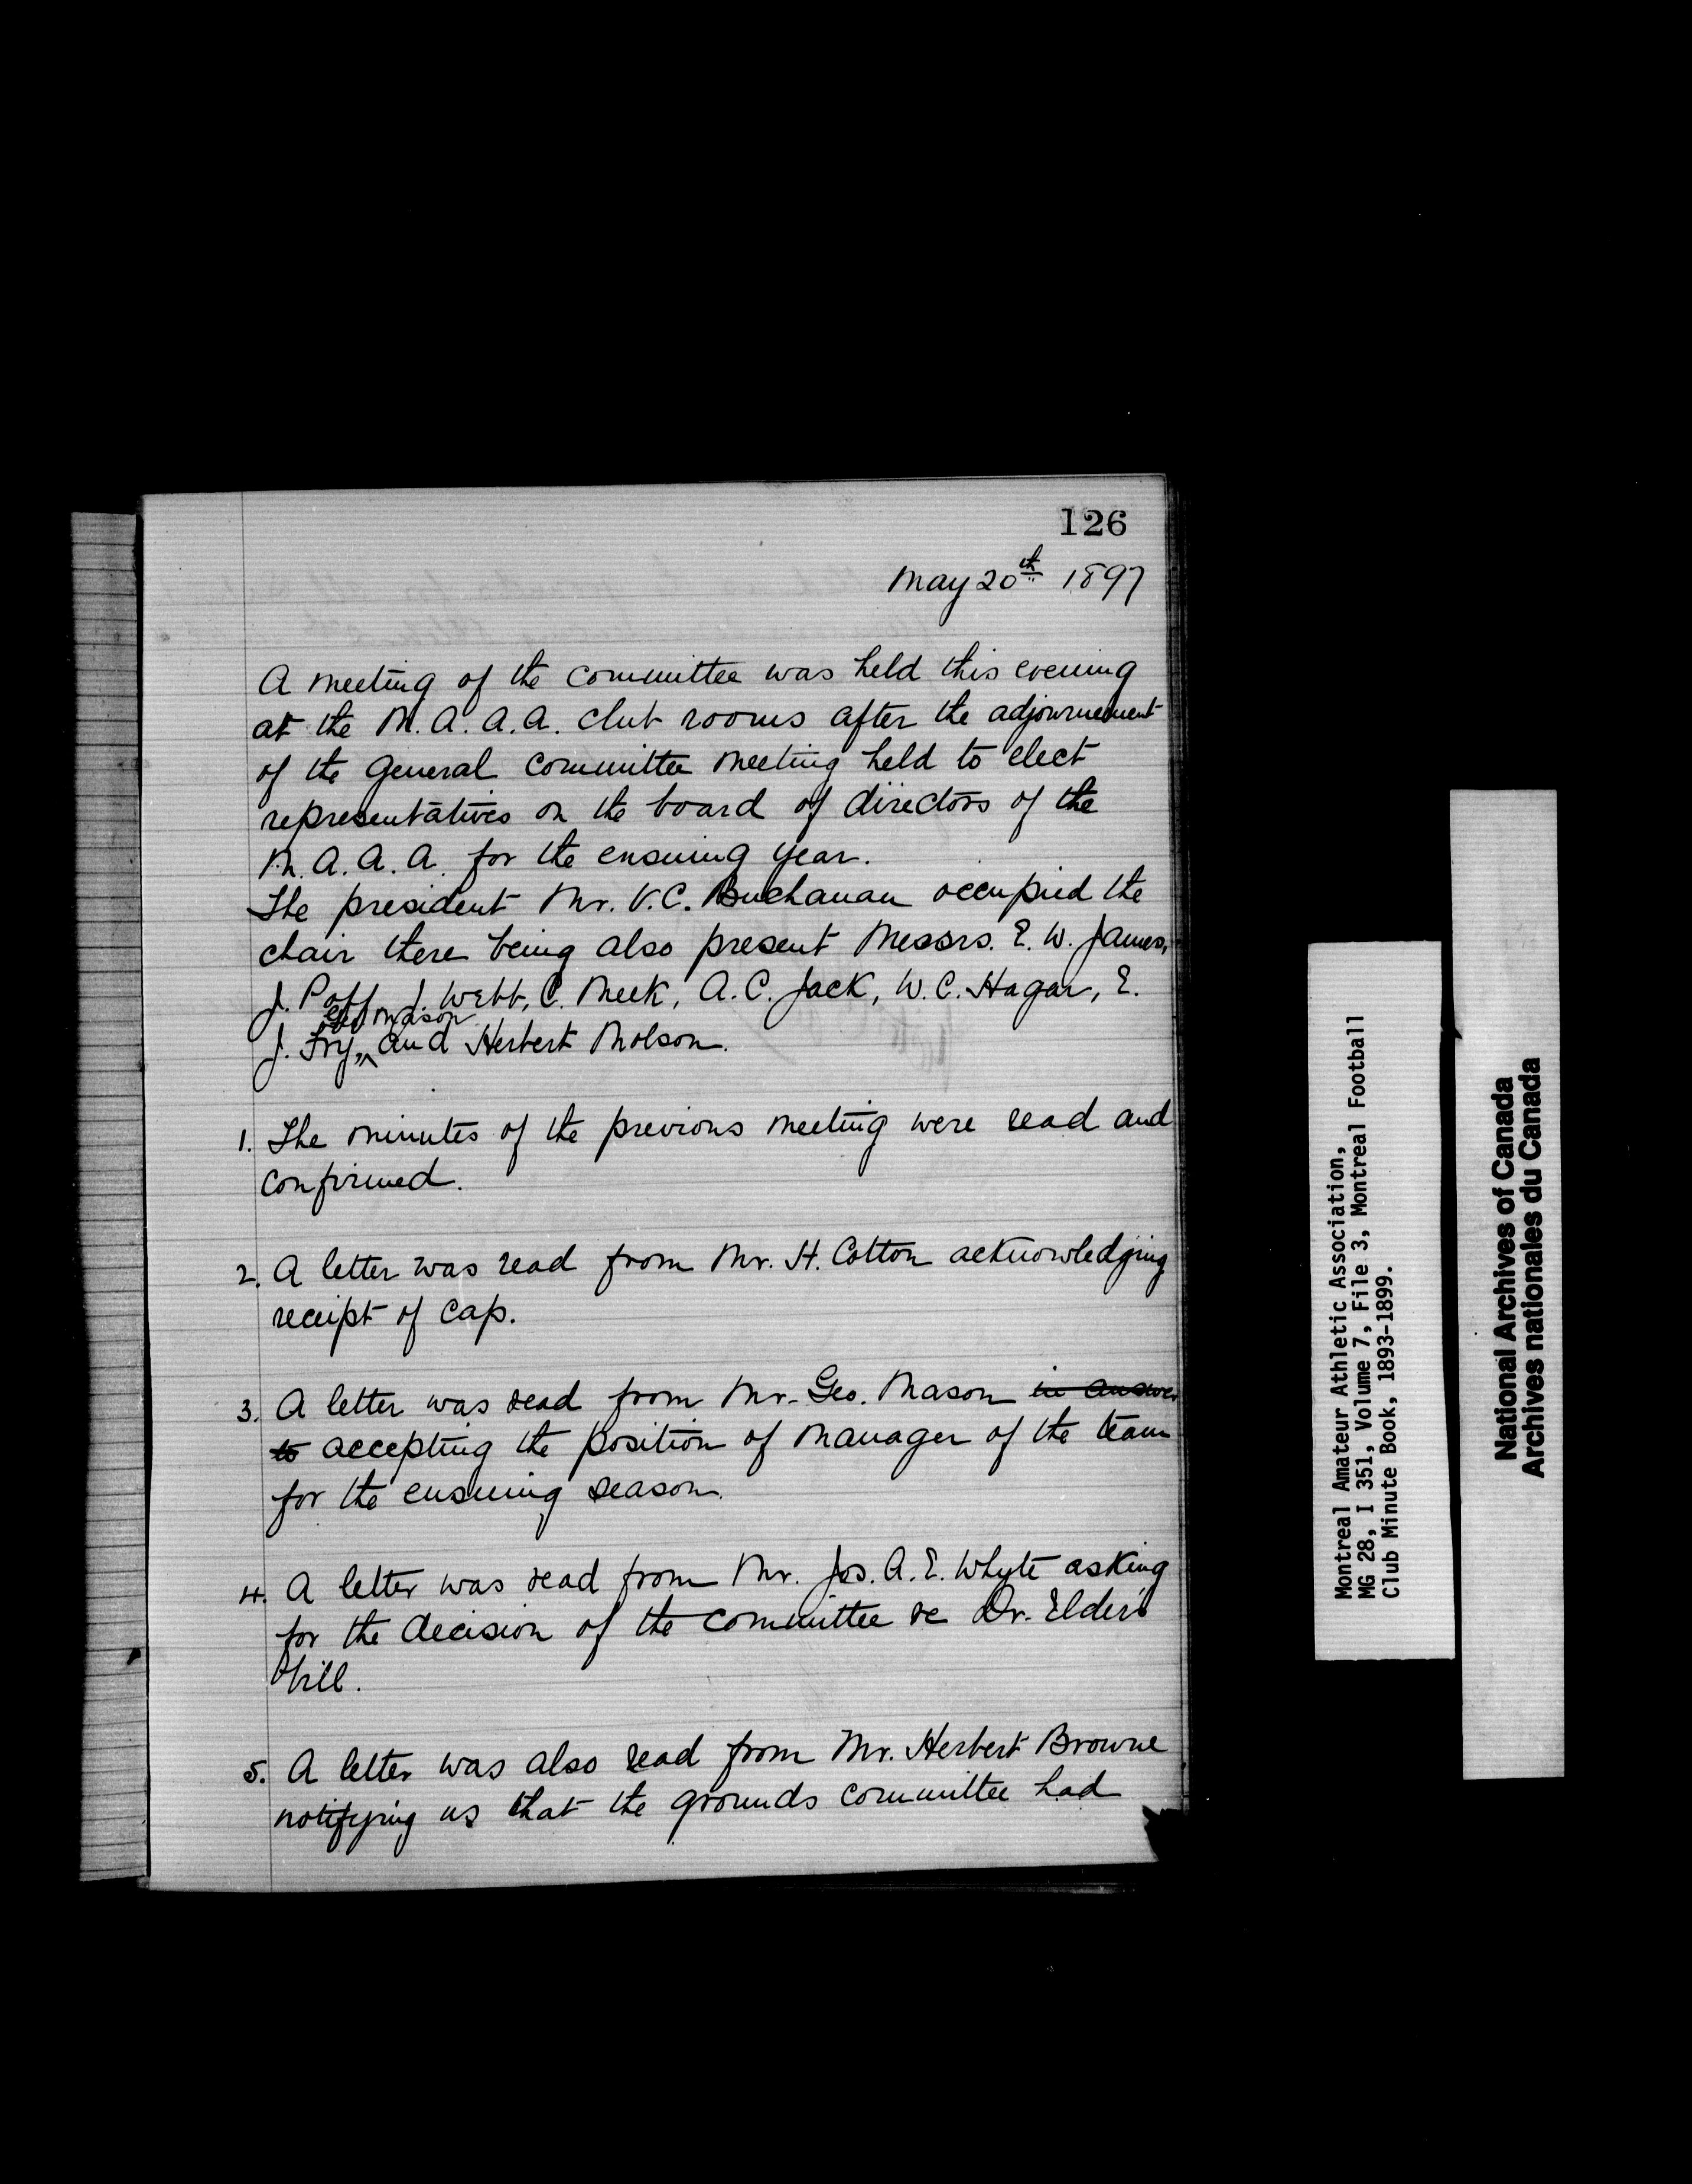 126
May 20th 1897
A meeting of the committee was held this evening
at the M.A.A.A. club rooms after the adjournement
of the general committee meeting held to elect
representatives on the board of directors of the
M.A.A.A. for the ensuing year.
The president Mr. V.C. Buchanan occupied the
chair there being also present Messrs. E. W. James,
J. Poff, J. Webb, C. Meek, A.C. Jack, W.C. Hagar, E.
Geo Mason
J. Fry, ^ and Herbert Molson.
1. The minutes of the previous meeting were read and
confirmed.
2. A letter was read from Mr. H. Cotton acknowledging
receipt of cap.
3. A letter was read from Mr. Geo. Mason in answer
to accepting the position of manager of the team
for the ensuing season.
4. A letter was read from Mr. Jos. A. E. Whyte asking
for the decision of the committee re Dr. Elder's
bill.
5. A letter was also read from Mr. Herbert Browne
notifying us that the grounds committee had
Montreal Amateur Athletic Association,
MG 28, I 351, Volume 7, File 3, Montreal Football
Club Minute Book, 1893-1899.
National Archives of Canada
Archives nationales du Canada